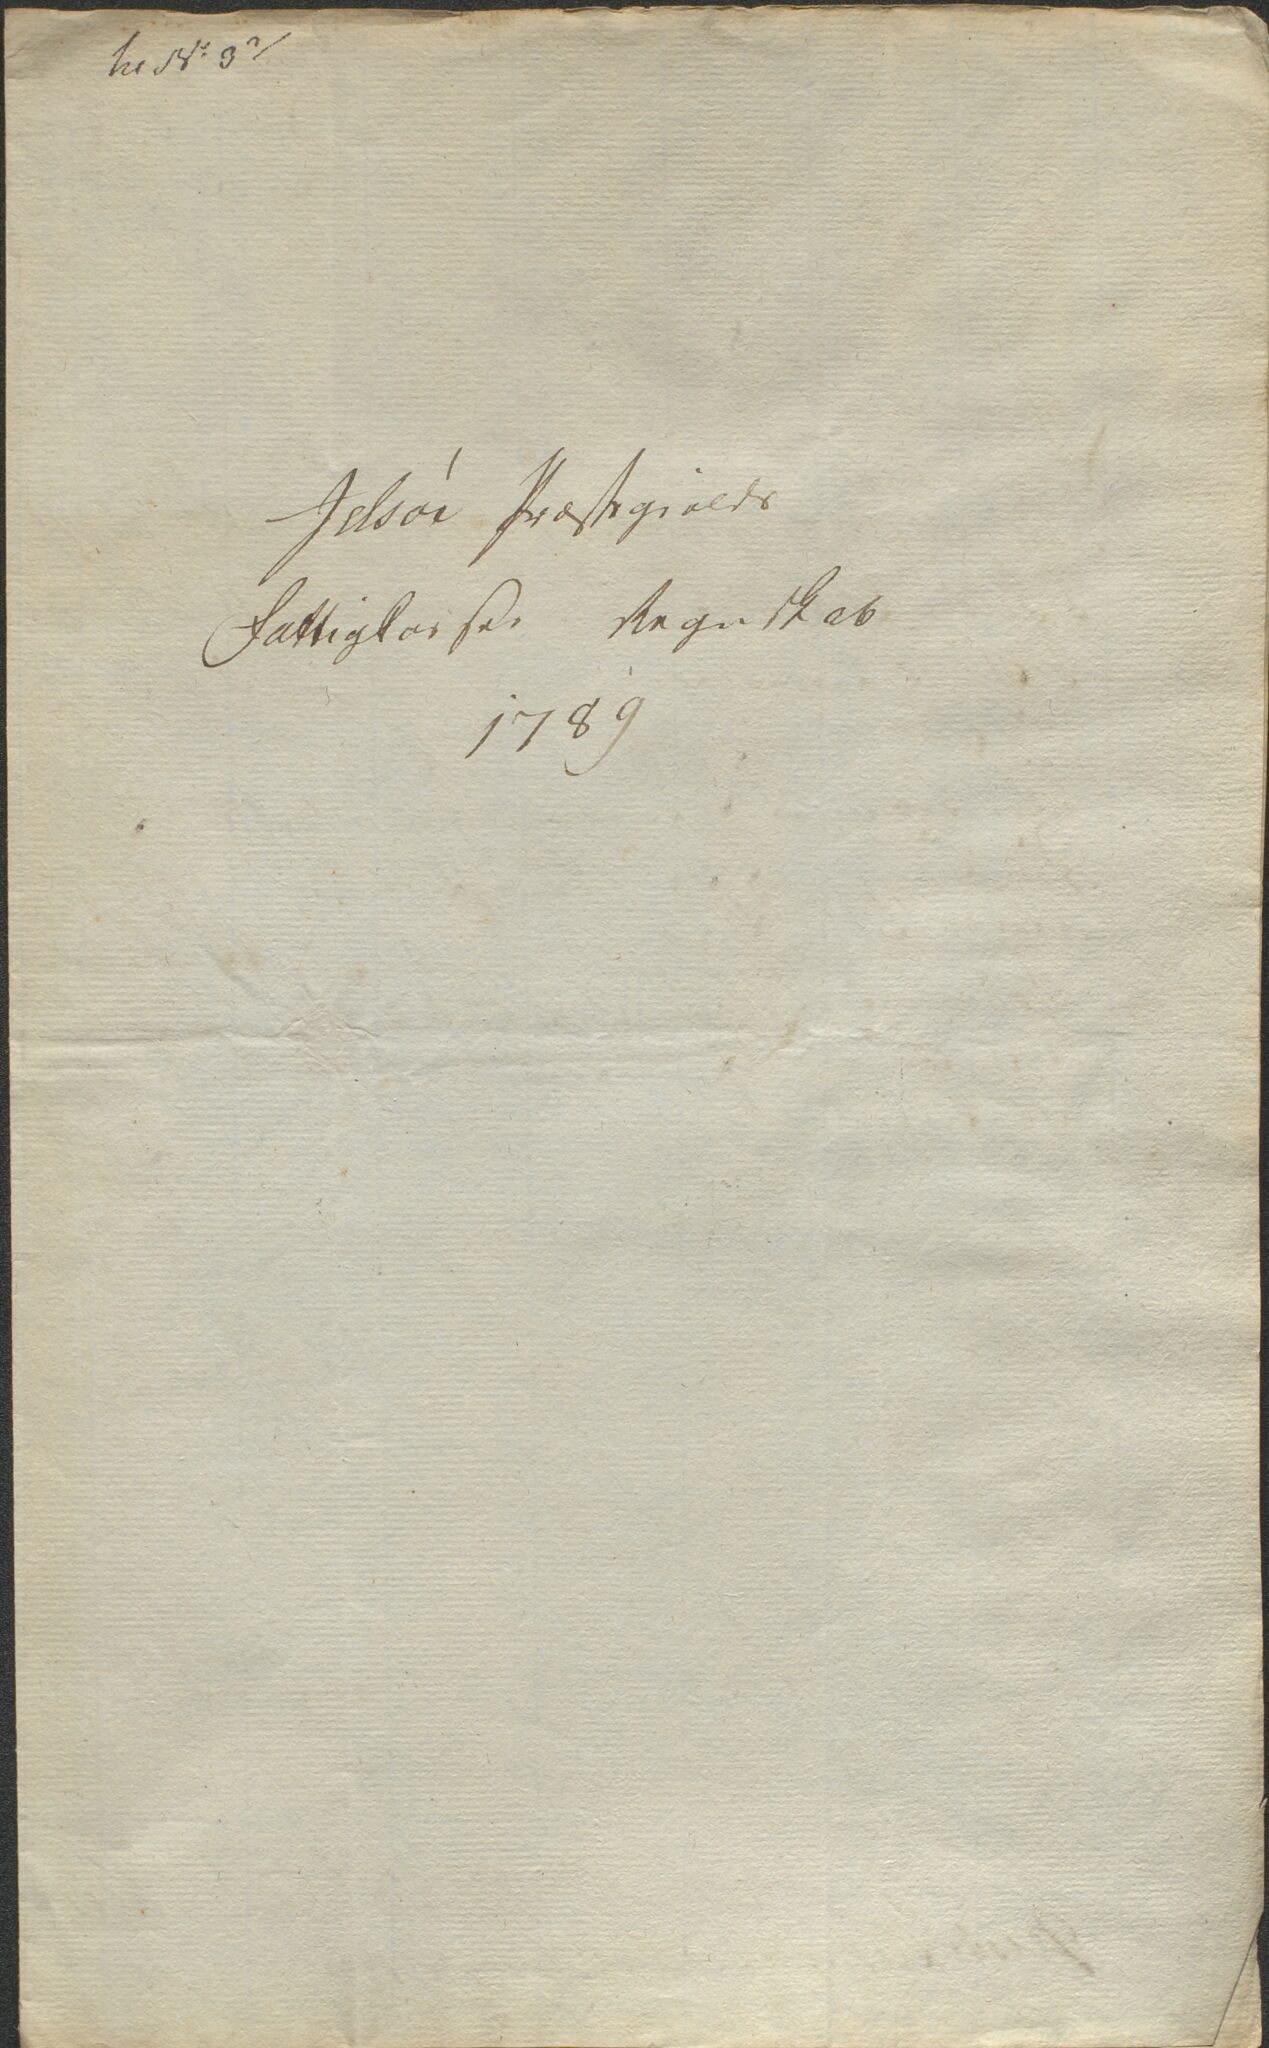 No 3
Jelsøe Præstegields
Fattigkasses Regnskab
1789